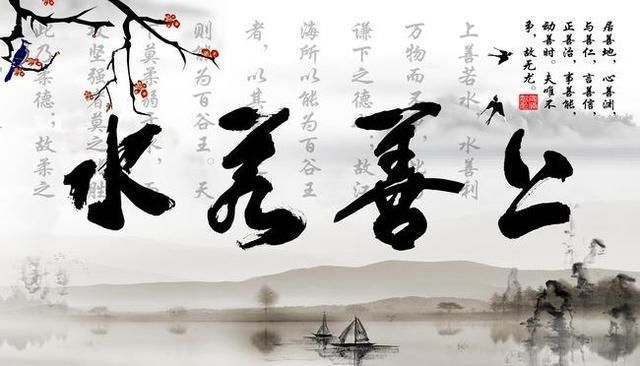 上善若水
居善地，心善渊，
与善仁，言善信，
正善治，事善能，
动善时。夫唯不
争，故无尤。
上善若水 水善利
万物而不
谦下之德 故江
海所以能为百谷王
者，以其
则能为百谷王。天
下莫柔弱 水，而
攻坚强者莫之 胜
此乃柔德；故柔之